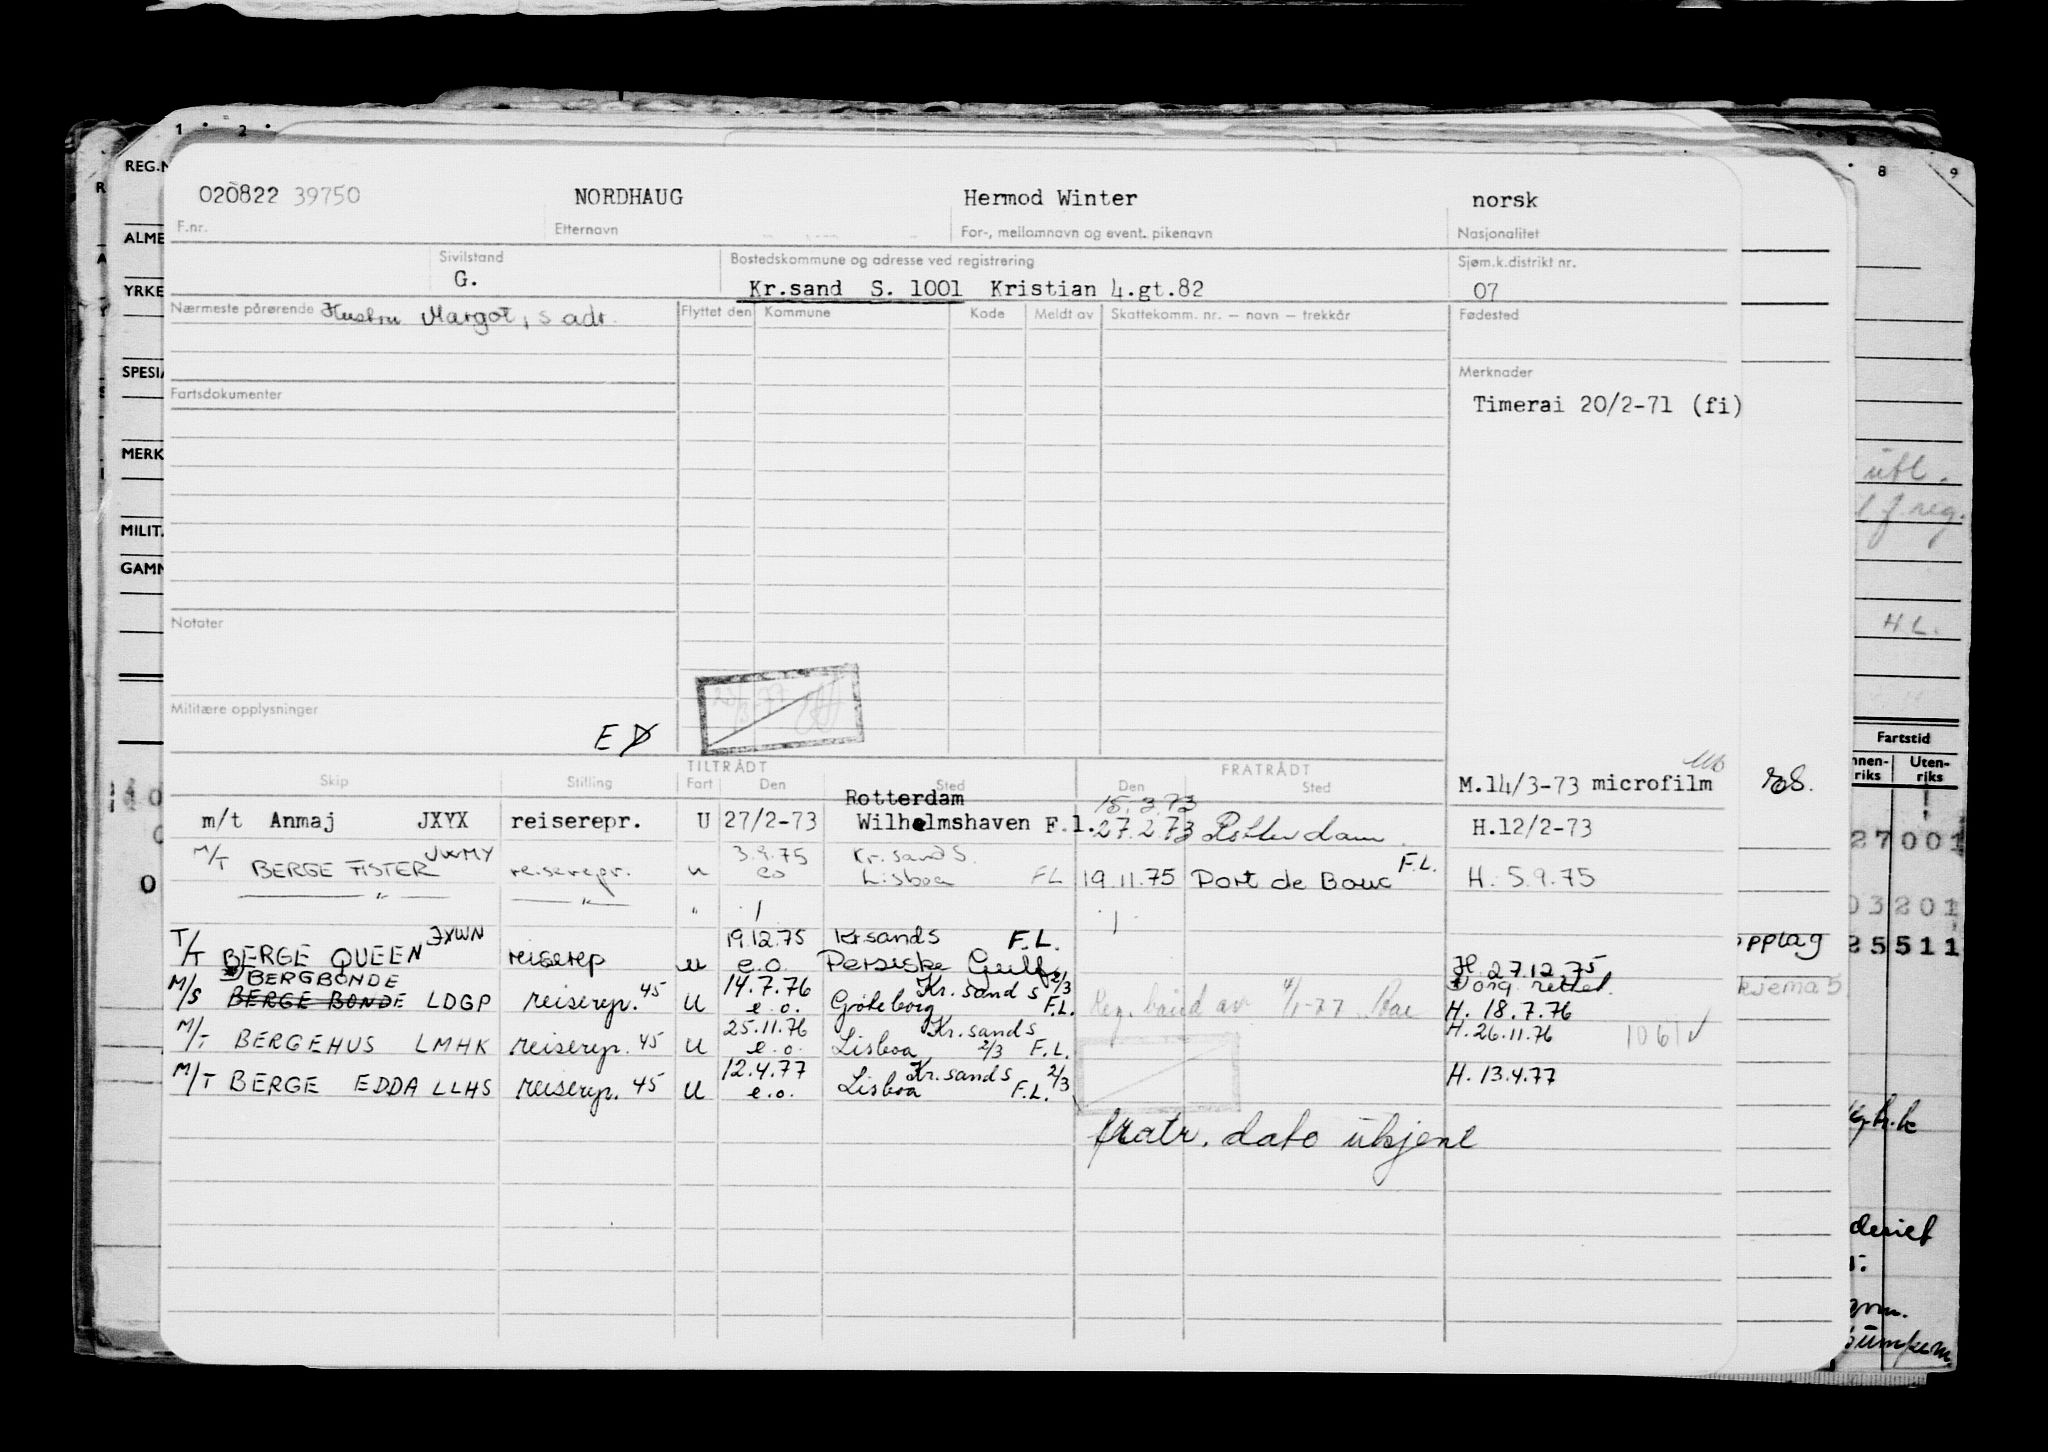 1 2 8 9
REG.N
020822 39750 NORDHAUG Hermod Winter norsk
F.nr. Etternavn For-, mellomnavn og event. pikenavn Nasjonalitet
ALME
Sivilstand Bostedskommune og adresse ved registrering Sjøm.k.distrikt nr.
G. Kr.sand S. 1001 Kristian 4.gt.82 07
YRKE
Nærmeste pårørende Hustru Margot, s adr. Flyttet den Kommune Kode Meldt av Skattekomm. nr. – navn – trekkår Fødested
SPESIA
Merknader
Fartsdokumenter
Timerai 20/2-71 (fi)
MERK
utl.
reg.
MILIT.
GAMM
Notater
H L.
Militære opplysninger
E D
Fartstid
TILTRÅDT FRATRÅDT
Skip Stilling Fart Den Sted Den Sted
M.14/3-73 microfilm
nnen- riks Uten- riks
Rotterdam 15.3.73
m/t Anmaj JXYX reiserepr. U 27/2-73 Wilhelmshaven F.l. 27.2.73 Rotterdam H.12/2-73
27001
M/T BERGE FISTER JWMY reiserepr. u 3.9.75 Kr.sand S.
eo Lisboa FL 19.11.75 Port de Bouc F.L. H. 5.9.75
— " — — " — "
03201
T/T BERGE QUEEN JXWN reiserep u 19.12.75 Kr.sand S F.L.
e.o. Persiske Gulf H. 27.12.75
opplag
25511
M/S BERGBONDE orig. rettet.
BERGE BONDE LDGP reiserepr. 45 U 14.7.76 Kr.sand S 2/3
e.o. Gøteborg F.L. Reg. av Bae H. 18.7.76
kjema 5
M/T BERGEHUS LMHK reiserepr. 45 U 25.11.76 Kr.sand S H.26.11.76
e.o. Lisboa 2/3 F.L. 1061
M/T BERGE EDDA LLHS reiserepr. 45 U 12.4.77 Kr.sand S 2/3 H. 13.4.77
e.o. Lisboa F.L.
fratr. dato ukjent